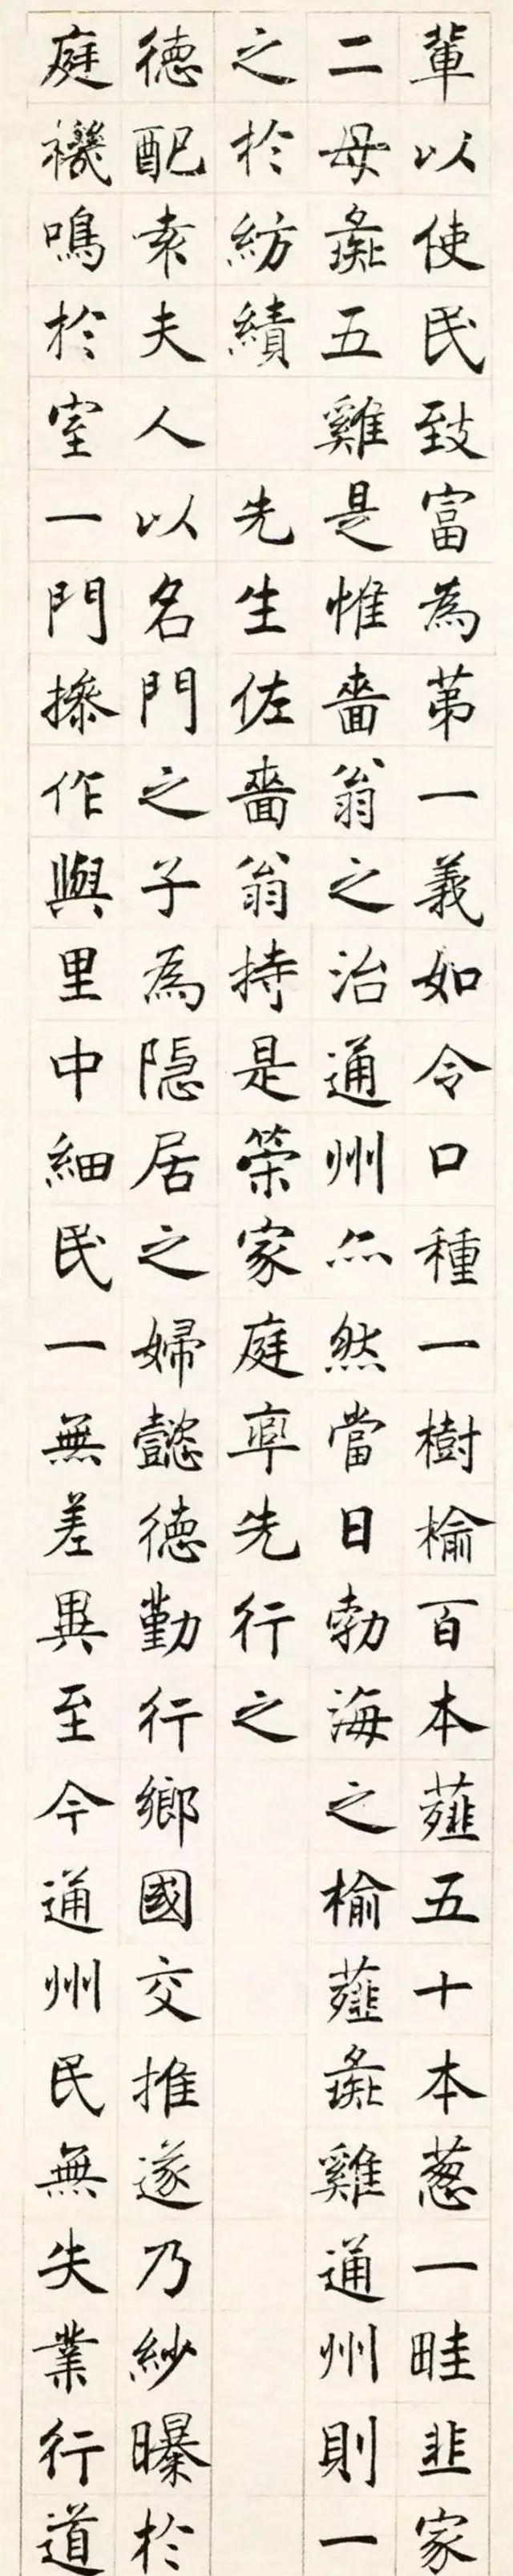 輩以使民致富為苐一義如令口種一樹榆百本薤五十本蔥一畦韭家
二母彘五雞是惟嗇翁之治通州亦然當日勃海之榆薤彘雞通州則一
之於紡績　先生佐嗇翁持是榮家庭率先行之
德配袁夫人以名門之子為隱居之婦懿德勤行鄉國交推遂乃紗曝於
庭禨鳴於室一門摻作與里中細民一無差異至今通州民無失業行道